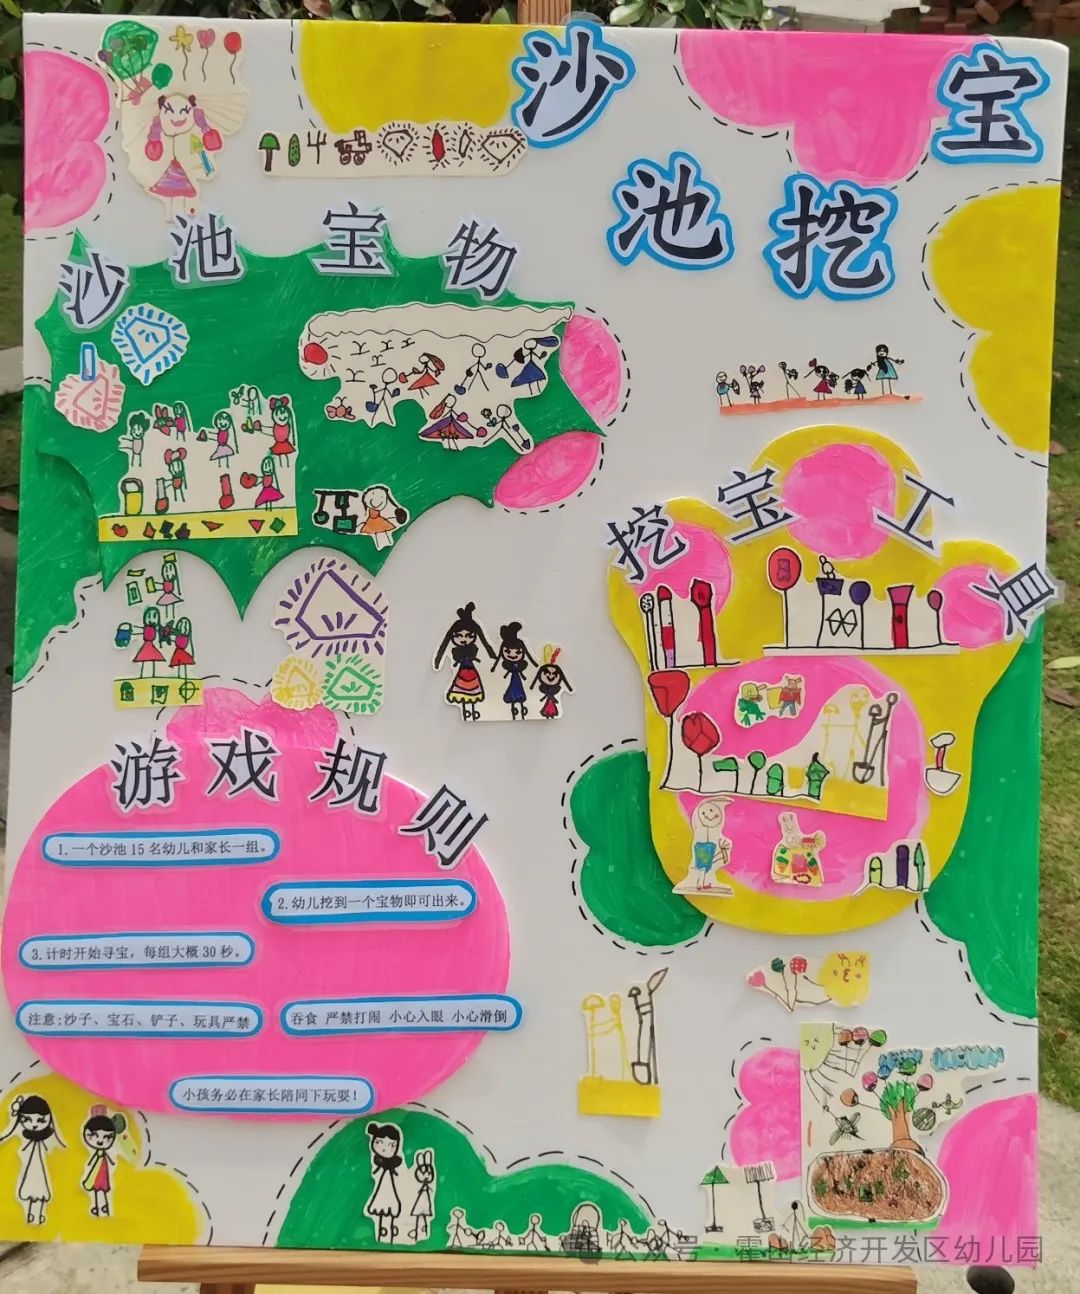 沙
池挖
宝
沙池宝物
挖宝工具
游戏规则
1.一个沙池15名幼儿和家长一组。
2.幼儿挖到一个宝物即可出来。
3.计时开始寻宝，每组大概30秒。
注意:沙子、宝石、铲子、玩具严禁
吞食 严禁打闹 小心入眼 小心滑倒
小孩务必在家长陪同下玩耍！
公众号·霍山经济开发区幼儿园